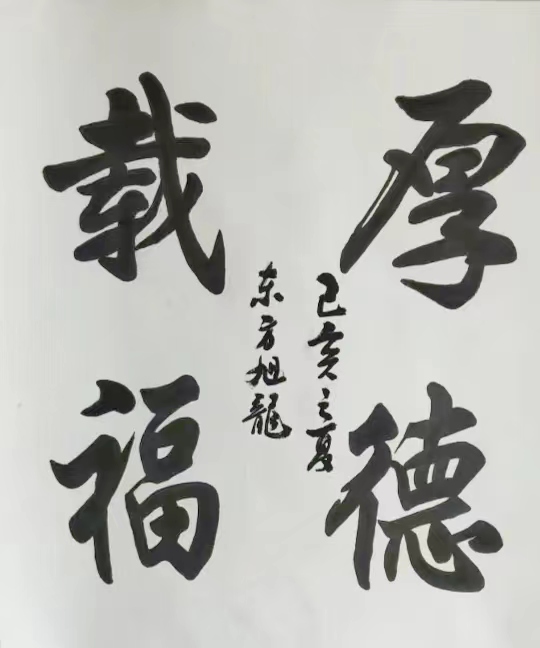 厚德
载福
己亥之夏
东方旭龍